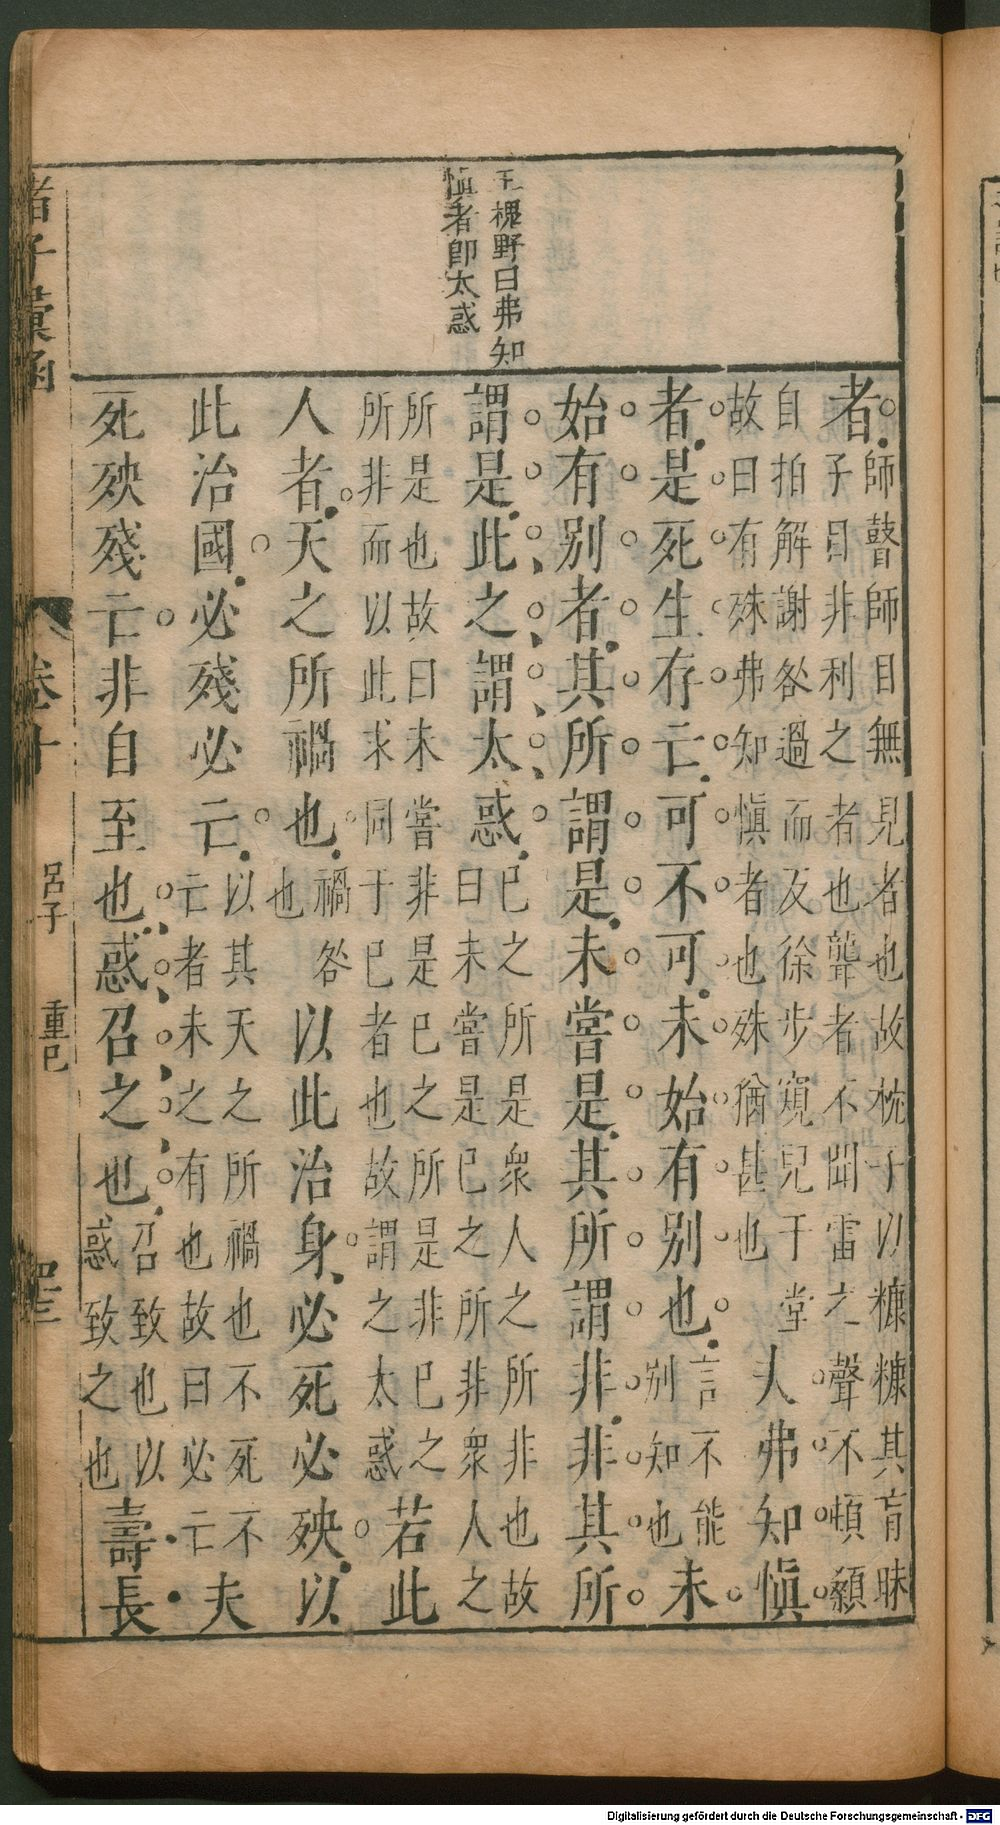 王槐野曰弗知
慎者即太惑
者師瞽師目無見者也故枕子以糠糠其盲昧
子目非利之者也聾者不聞雷之聲不頓顙
自拍解謝咎過而反徐步窺兒于堂
故曰有殊弗知慎者也殊猶甚也夫弗知慎
者是死生存亡可不可未始有别也言不能别知也未
始有别者其所謂是未嘗是其所謂非非其所
謂是此之謂太惑已之所是衆人之所非也故
曰未嘗是已之所非衆人之
所是也故曰未嘗非是已之所是非已之
所非而以此求同于已者也故謂之太惑若此
人者天之所禍也禍咎也以此治身必死必殃以
此治國必殘必亡以其天之所禍也不死不
亡者未之有也故曰必亡夫
死殃殘亡非自至也惑召之也召致也以惑致之也壽長
諸子彙函 卷十 呂子 重己
Digitalisierung gefördert durch die Deutsche Forschungsgemeinschaft - DFG